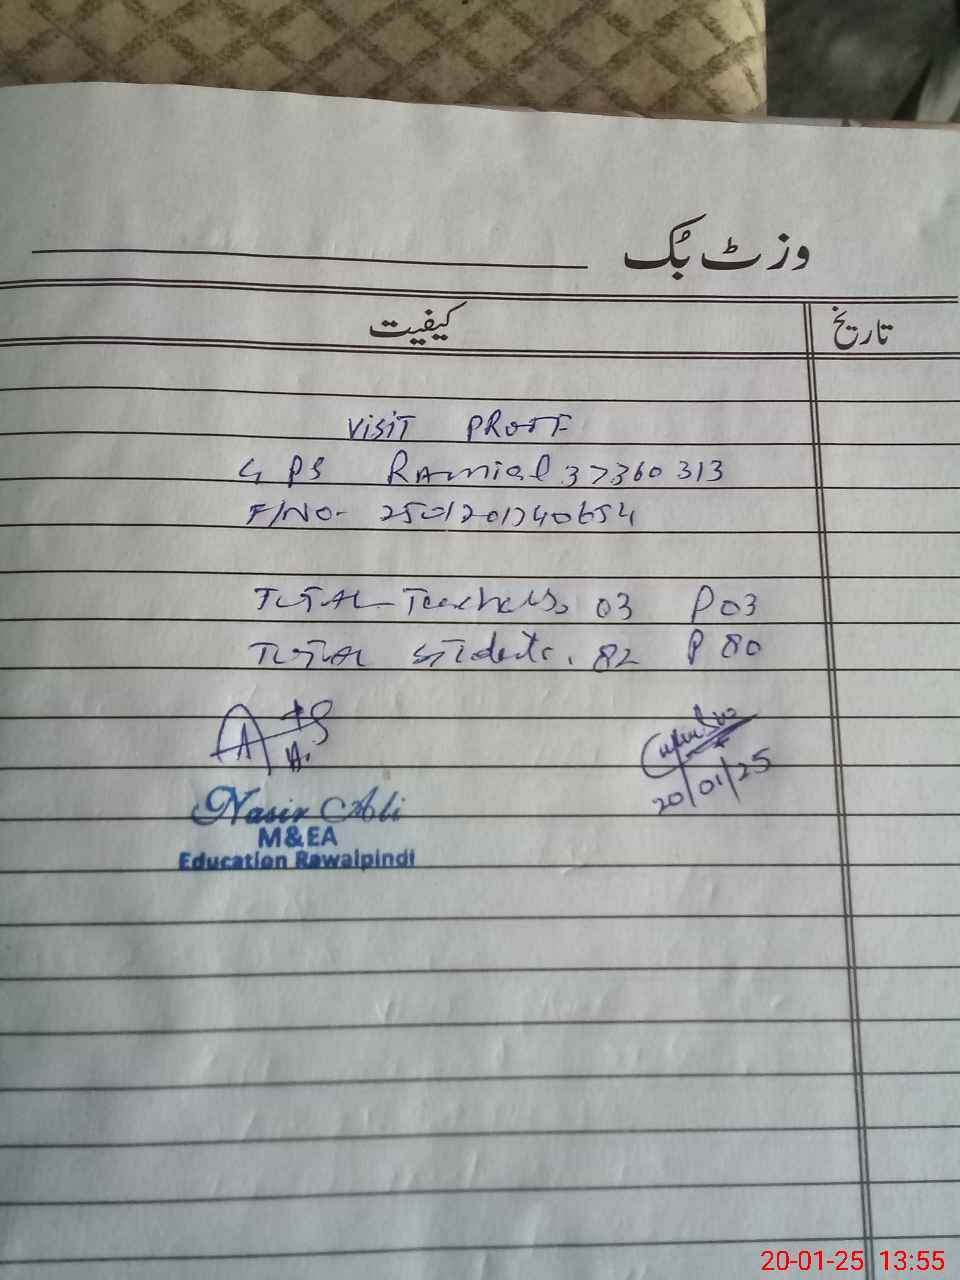 وزٹ بُک
تاریخ کیفیت
VISIT PROFF
GPS RAmial 37360313
F/NO- 2501201740654
TOTAL Teachers. 03 P 03
TOTAL students. 82 P 80
20/01/25
Nasir Ali
M&EA
Education Rawalpindi
20-01-25 13:55